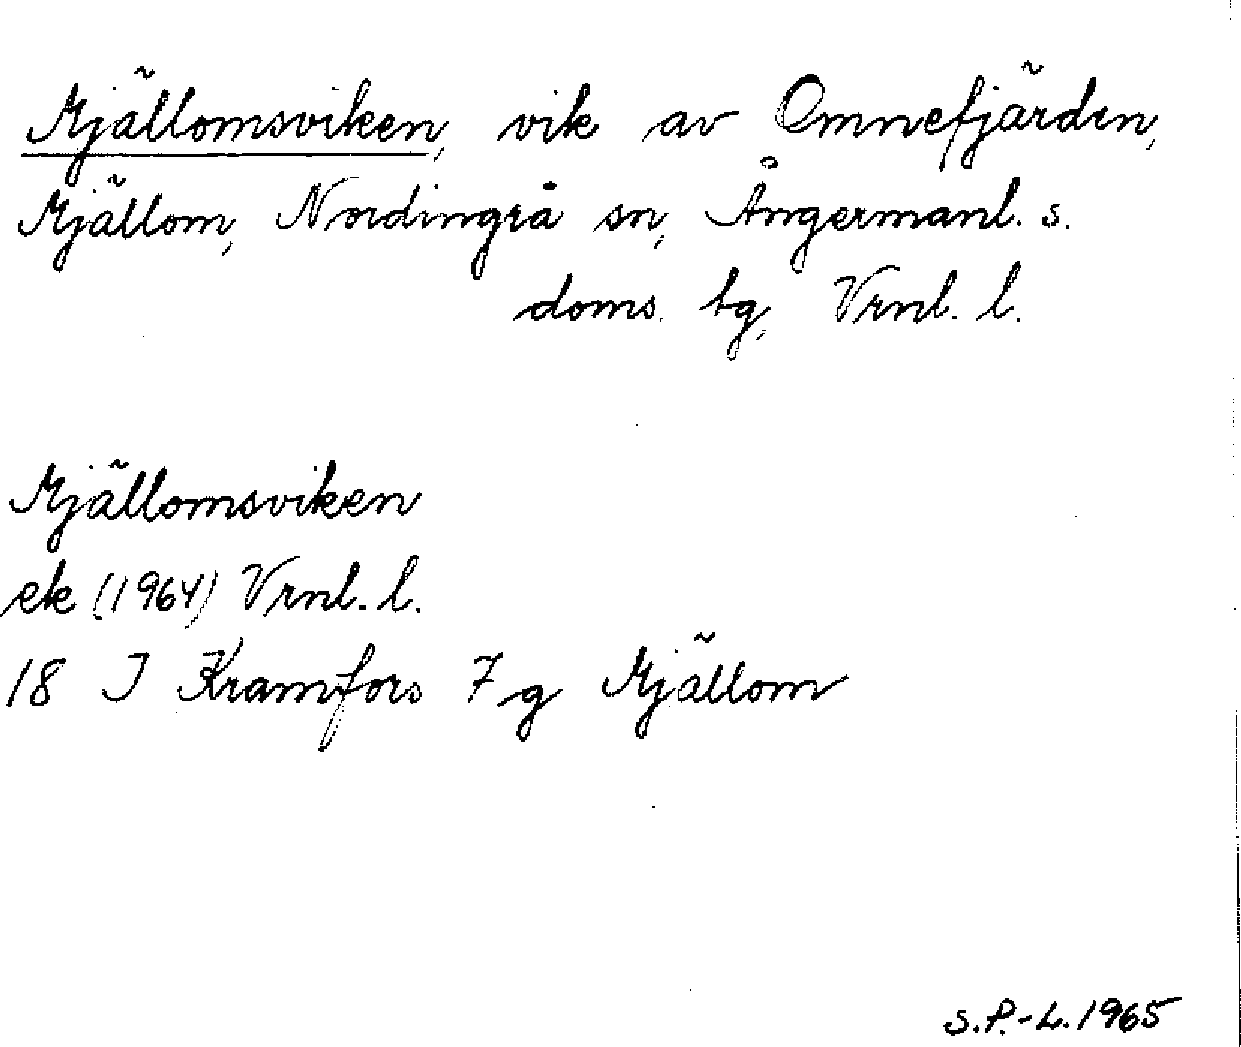 Mjällomsviken, vik av Omnefjärden,
Mjällom, Nordingrå sn, Ångermanl. s.
doms. tg, Vrnl. l.
Mjällomsviken
ek (1964) Vrnl. l.
18 I Kramfors 7 g Mjällom
S.P.-L. 1965